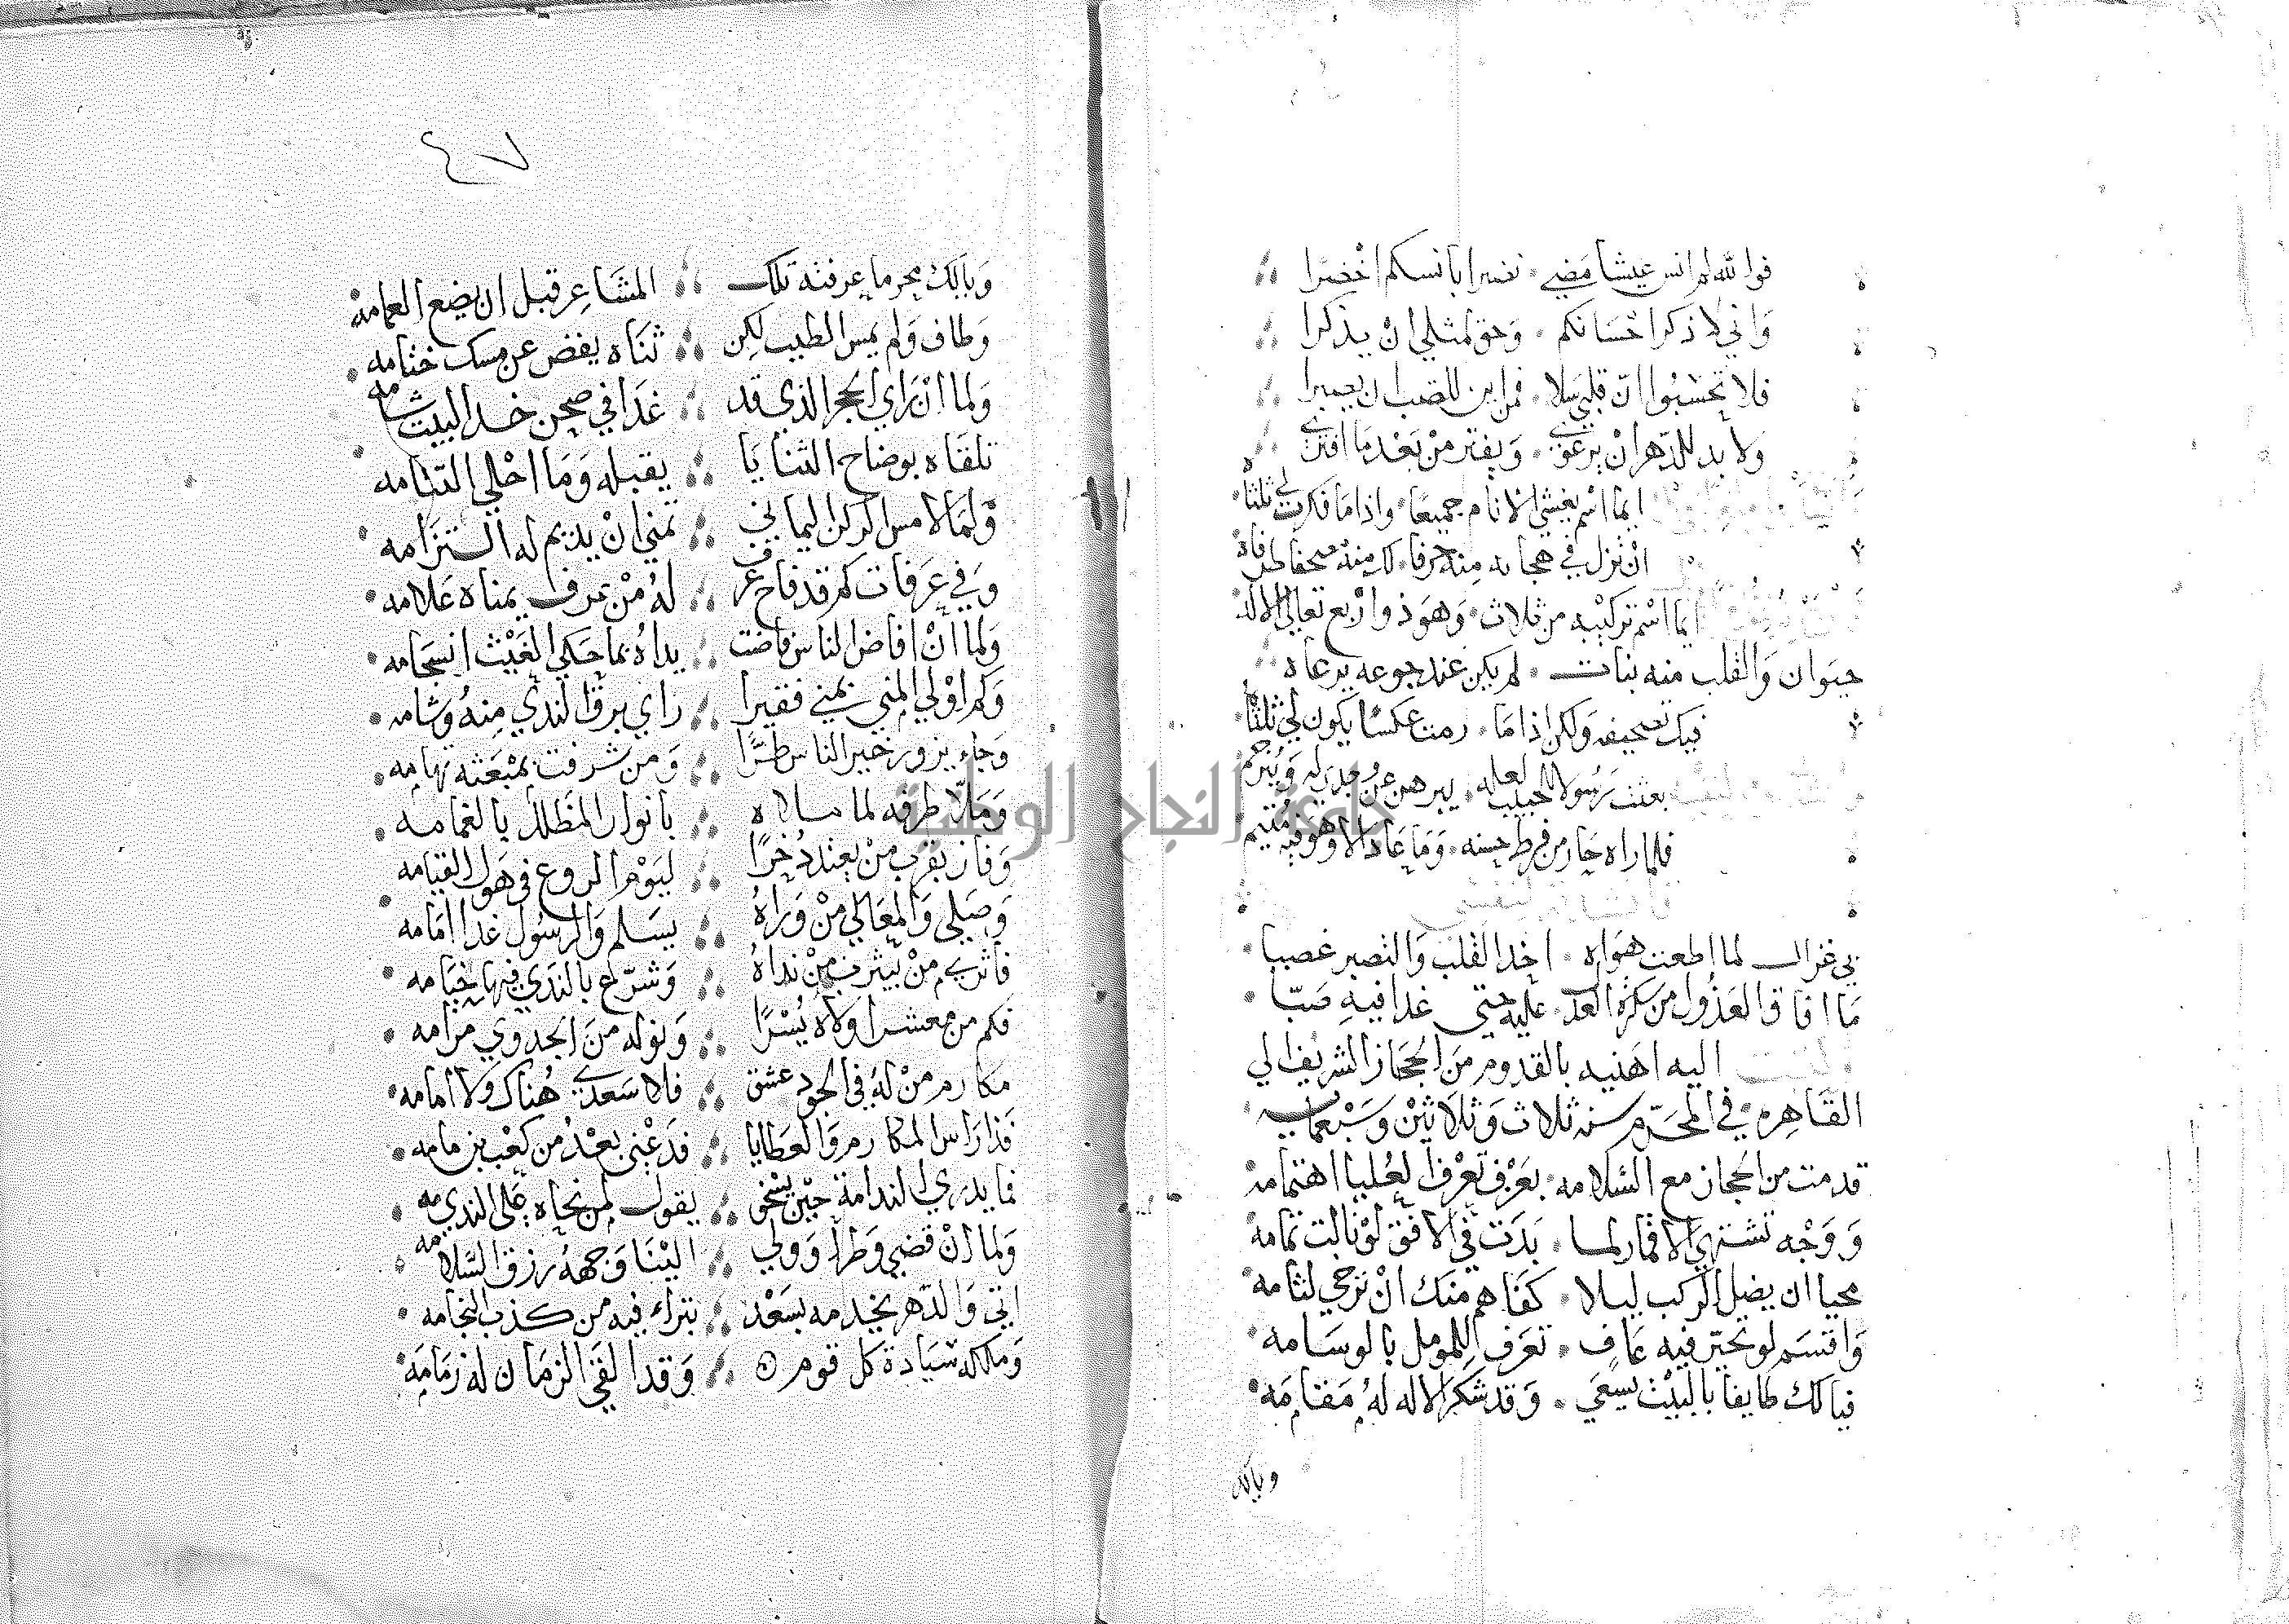 فوالله لم انس عيشا مضى نضيرا بانسكم اخضرا
واني لاذكر احسانكم وحق لمثلي ان يذكرا
فلا تحسبوا ان قلبي سلا فمن اين للصب ان يصبرا
ولا بد للدهر ان يرعوى ويفتر من بعد ما افترى
ايما اسم يغشى الانام جميعا واذا ما فكرت لي ثلثاه
ان تزل في هجائه منه حرفا لك منه مصحفا طرفاه
ايما اسم تركيبه من ثلاث وهو ذو اربع تعالى الاله
حيوان والقلب منه نبات لم يكن عند جوعه يرعاه
فيك تصحيفه ولكن اذا ما رمت عكسا يكون لي ثلثاه
بعثت رسولا للحبيب لعله يبرهن عن وجدي له ويترجم
فلما راه حار من فرط حسنه وما عاد الا وهو فيه متيم
بي غزال لما اطعت هواه اخذ القلب والتصبر غصبا
ما افاق العذول من سكرة العذل عليه حتى غدا فيه صبا
وكتبت اليه اهنيه بالقدوم من الحجاز الشريف الى
القاهرة في المحرم سنه ثلاث وثلاثين وسبعمايه
قدمت من الحجاز مع السلامه بعزف تعرف لعليا اهتمامه
ووجه تشتهي الاقمار لما بدت في الافق لو نالت تمامه
محيا ان يضل الركب ليلا كفاهم منك ان ترخي لثامه
واقسم لو تحير فيه عاف تعرف للمومل بالوسامه
فيالك طايفا بالبيت يسعى وقد شكر الاله له مقامه
وبالك
٤٧
وبالك محرما عرفته تلك المشاعر قبل ان يضع العمامه
وطاف ولم يمس الطيب لكن ثناه يفض عن مسك ختامه
ولما ان راي الحجر الذي قد غدا في صحن خد البيت شامه
تلقاه بوضاح الثنايا يقبله وما احلي التثامه
ولما لامس الركن اليماني تمني ان يديم له التزامه
وفي عرفات كم قد فاح عرف له من عرف يمناه علامه
ولما ان افاض الناس فاضت يداه بما حكي الغيث انسجامه
وكم اولي المني بمني فقيرا راي برق الندي منه وشامه
وجاء يزور خير الناس طرا ومن شرفت بمبعثه تهامه
وملا طرفه لما ملاه بانوار المظلل بالغمامه
وفاز بقرب من يعتد ذخرا ليوم الروع في هول القيامه
وصلي والمعالي من وراه يسلم والرسول غدا امامه
فاثري من بيثرب من نداه وشرع بالندي فيها خيامه
فكم من معشر اولاه يسرا ونوله من الجدوي مرامه
مكارم من له في الجود عشق فلا سعدى هناك ولا امامه
فذا راس المكارم والعطايا فدعني بعد من كعب بن مامه
فما يدري الندامة حين يسخو يقول لمن نحاه علي الندي مه
ولما ان قضي وطرا وولي الينا وجهه رزق السلامه
اتي والدهر يخدمه بسعد تبراء فيه من كذب النجامه
وملكه سيادة كل قوم وقد القي الزمان له زمامه
جامعة النجاح الوطنية